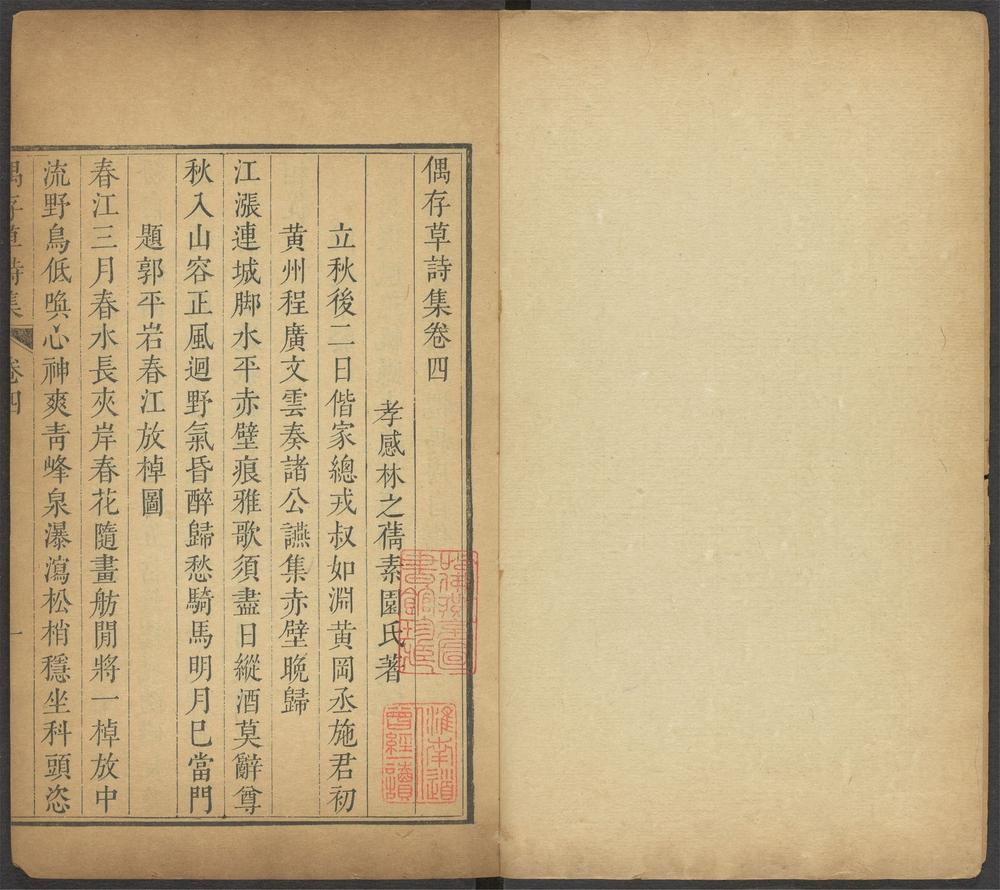 偶存草詩集卷四
孝感林之蒨素園氏著
立秋後二日偕家總戎叔如淵黃岡丞施君初
黃州程廣文雲奏諸公讌集赤壁晚歸
江漲連城脚水平赤壁痕雅歌須盡日縱酒莫辭尊
秋入山容正風迴野氣昏醉歸愁騎馬明月巳當門
題郭平岩春江放棹圖
春江三月春水長夾岸春花隨畫舫閒將一棹放中
流野鳥低喚心神爽靑峰泉瀑瀉松梢穩坐科頭恣
偶存草詩集
卷四
一
哈佛燕京圖書館珍藏
淮南道
曾經讀